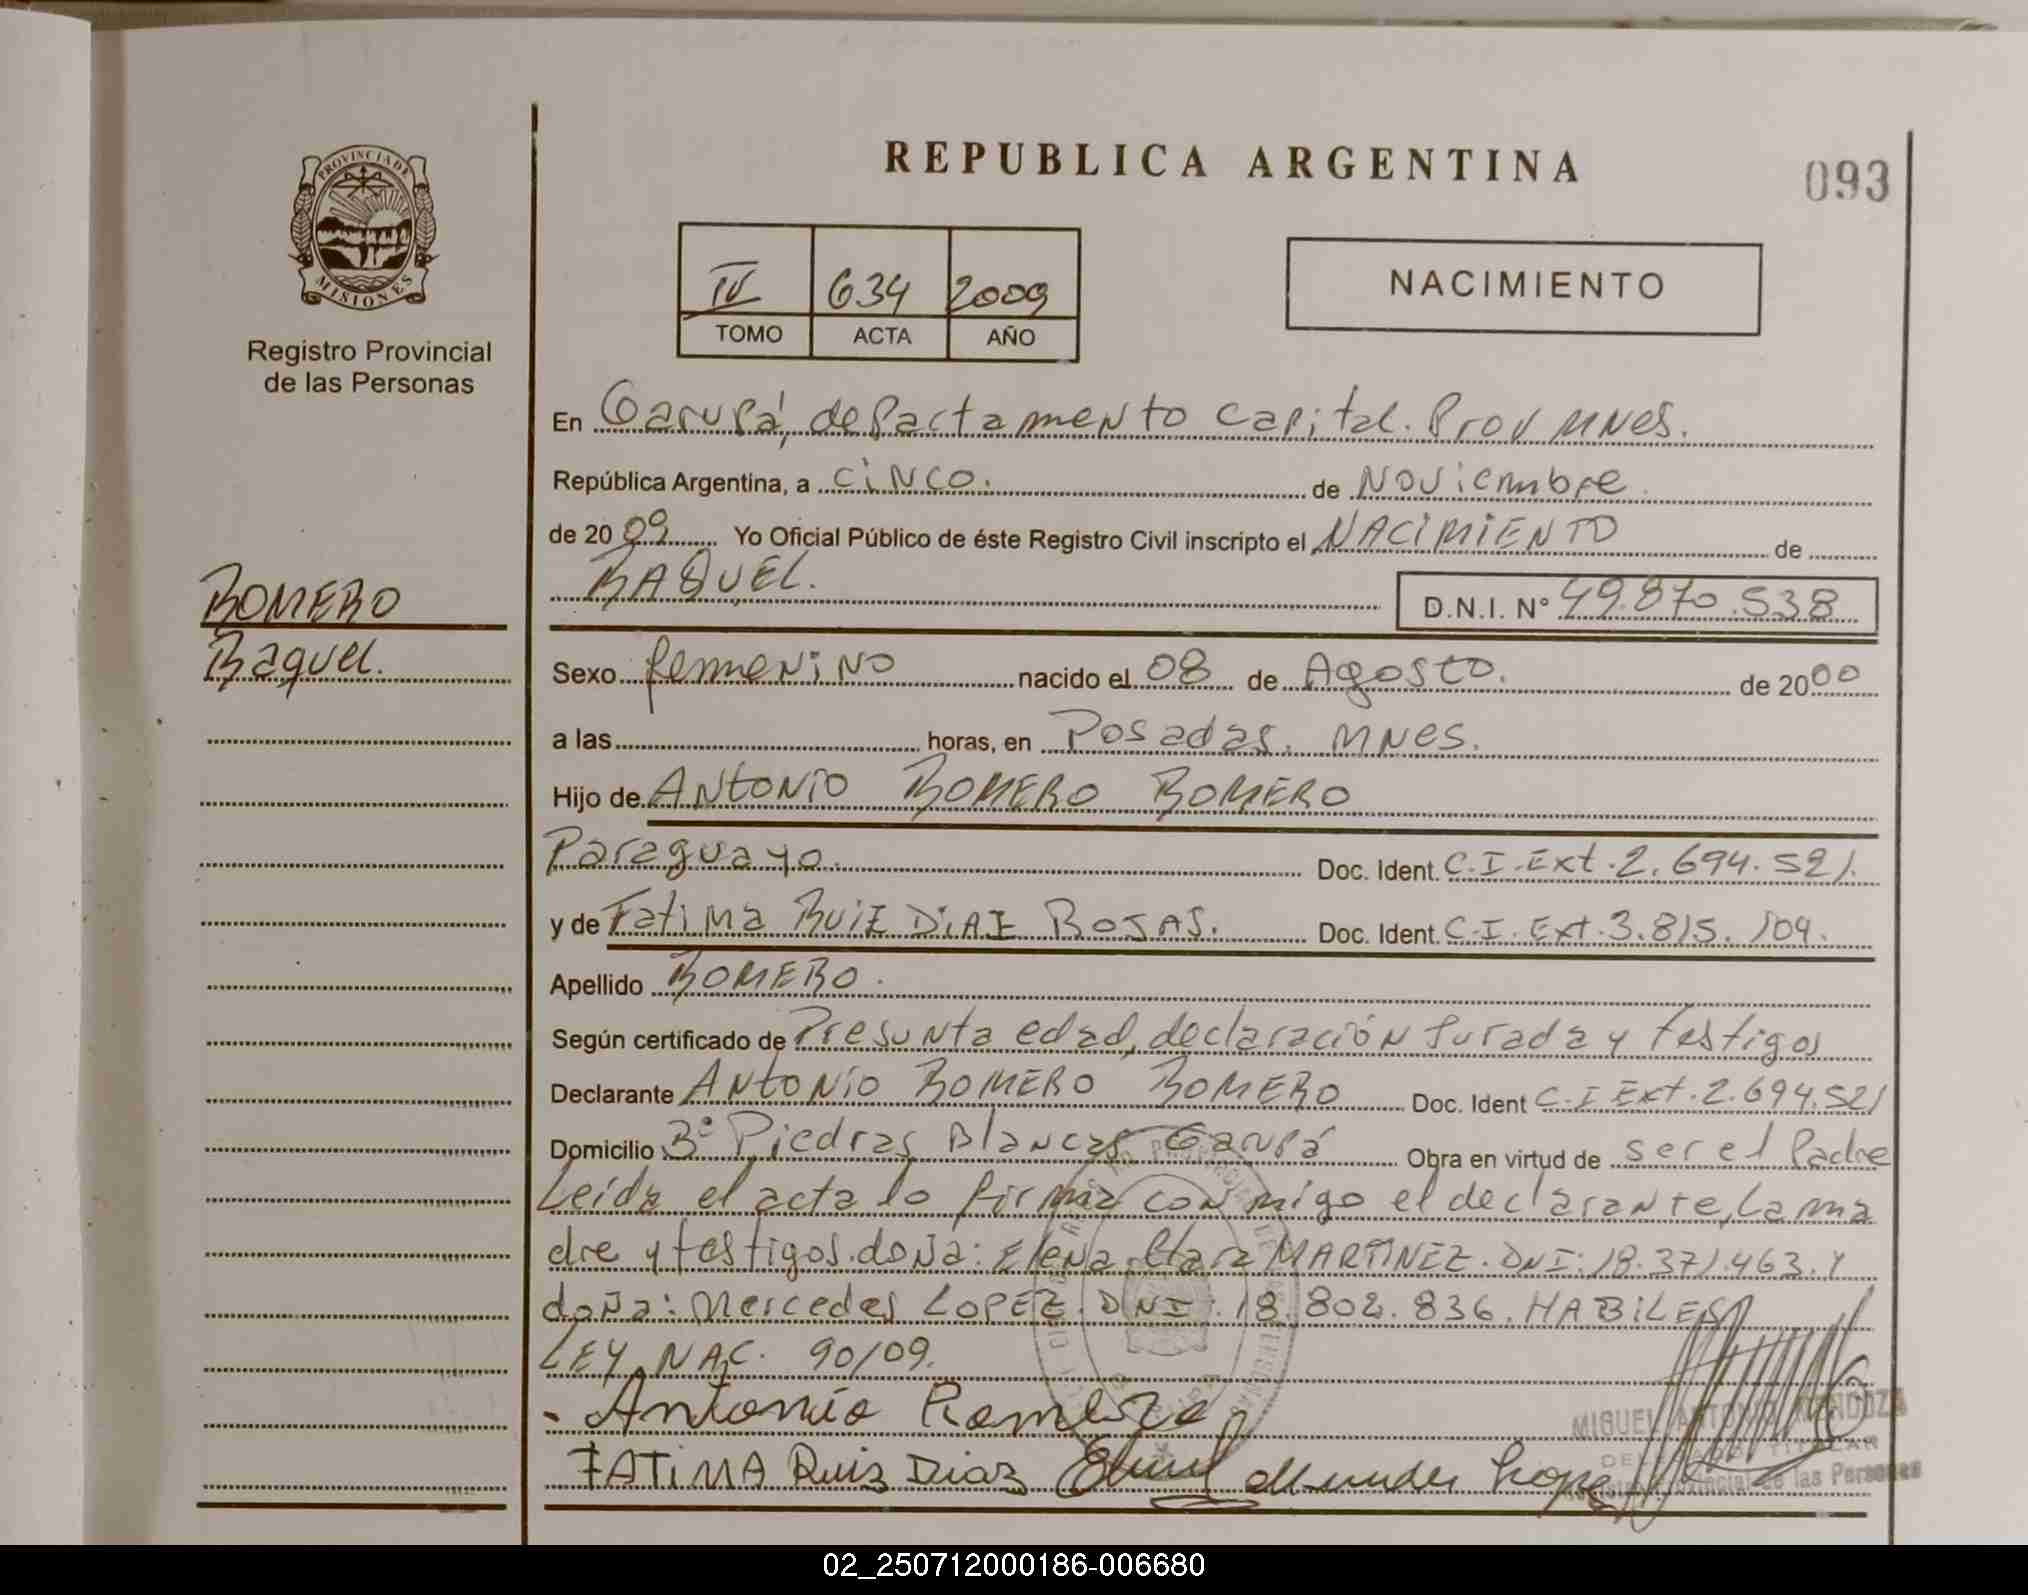 REPUBLICA ARGENTINA
093
PROVINCIA DE
MISIONES
Registro Provincial
de las Personas
IV 634 2009
TOMO ACTA AÑO
NACIMIENTO
En Garupá, departamento Capital. Prov Mnes.
República Argentina, a cinco. de Noviembre
de 2009 Yo Oficial Público de éste Registro Civil inscripto el NACIMIENTO de
RAQUEL. D.N.I. Nº 49.870.538
ROMERO
Raquel.
Sexo femenino nacido el 08 de Agosto. de 2000
a las horas, en Posadas. Mnes.
Hijo de Antonio ROMERO ROMERO
Paraguayo. Doc. Ident. C.I.Ext.2.694.521.
y de Fatima RUIZ DIAZ ROJAS. Doc. Ident. C.I.Ext.3.815.109.
Apellido ROMERO.
Según certificado de Presunta edad, declaración Jurada y testigos
Declarante Antonio ROMERO ROMERO Doc. Ident C.I Ext.2.694.521
Domicilio Bº Piedras Blancas Garupá Obra en virtud de ser el Padre
Leida el acta lo firma conmigo el declarante, la ma
dre y testigos.doña: Elena Clara MARTINEZ.DNI:18.371.463.Y
doña: Mercedes LOPEZ.DNI:18.802.836.HABILES
LEY.NAC. 90/09.
Antonio Romero
FATIMA Ruiz Diaz Mercedes Lopez
MIGUEL ANTONIO MENDOZA
DELEGADO TITULAR
Registro Provincial de las Personas
02_250712000186-006680